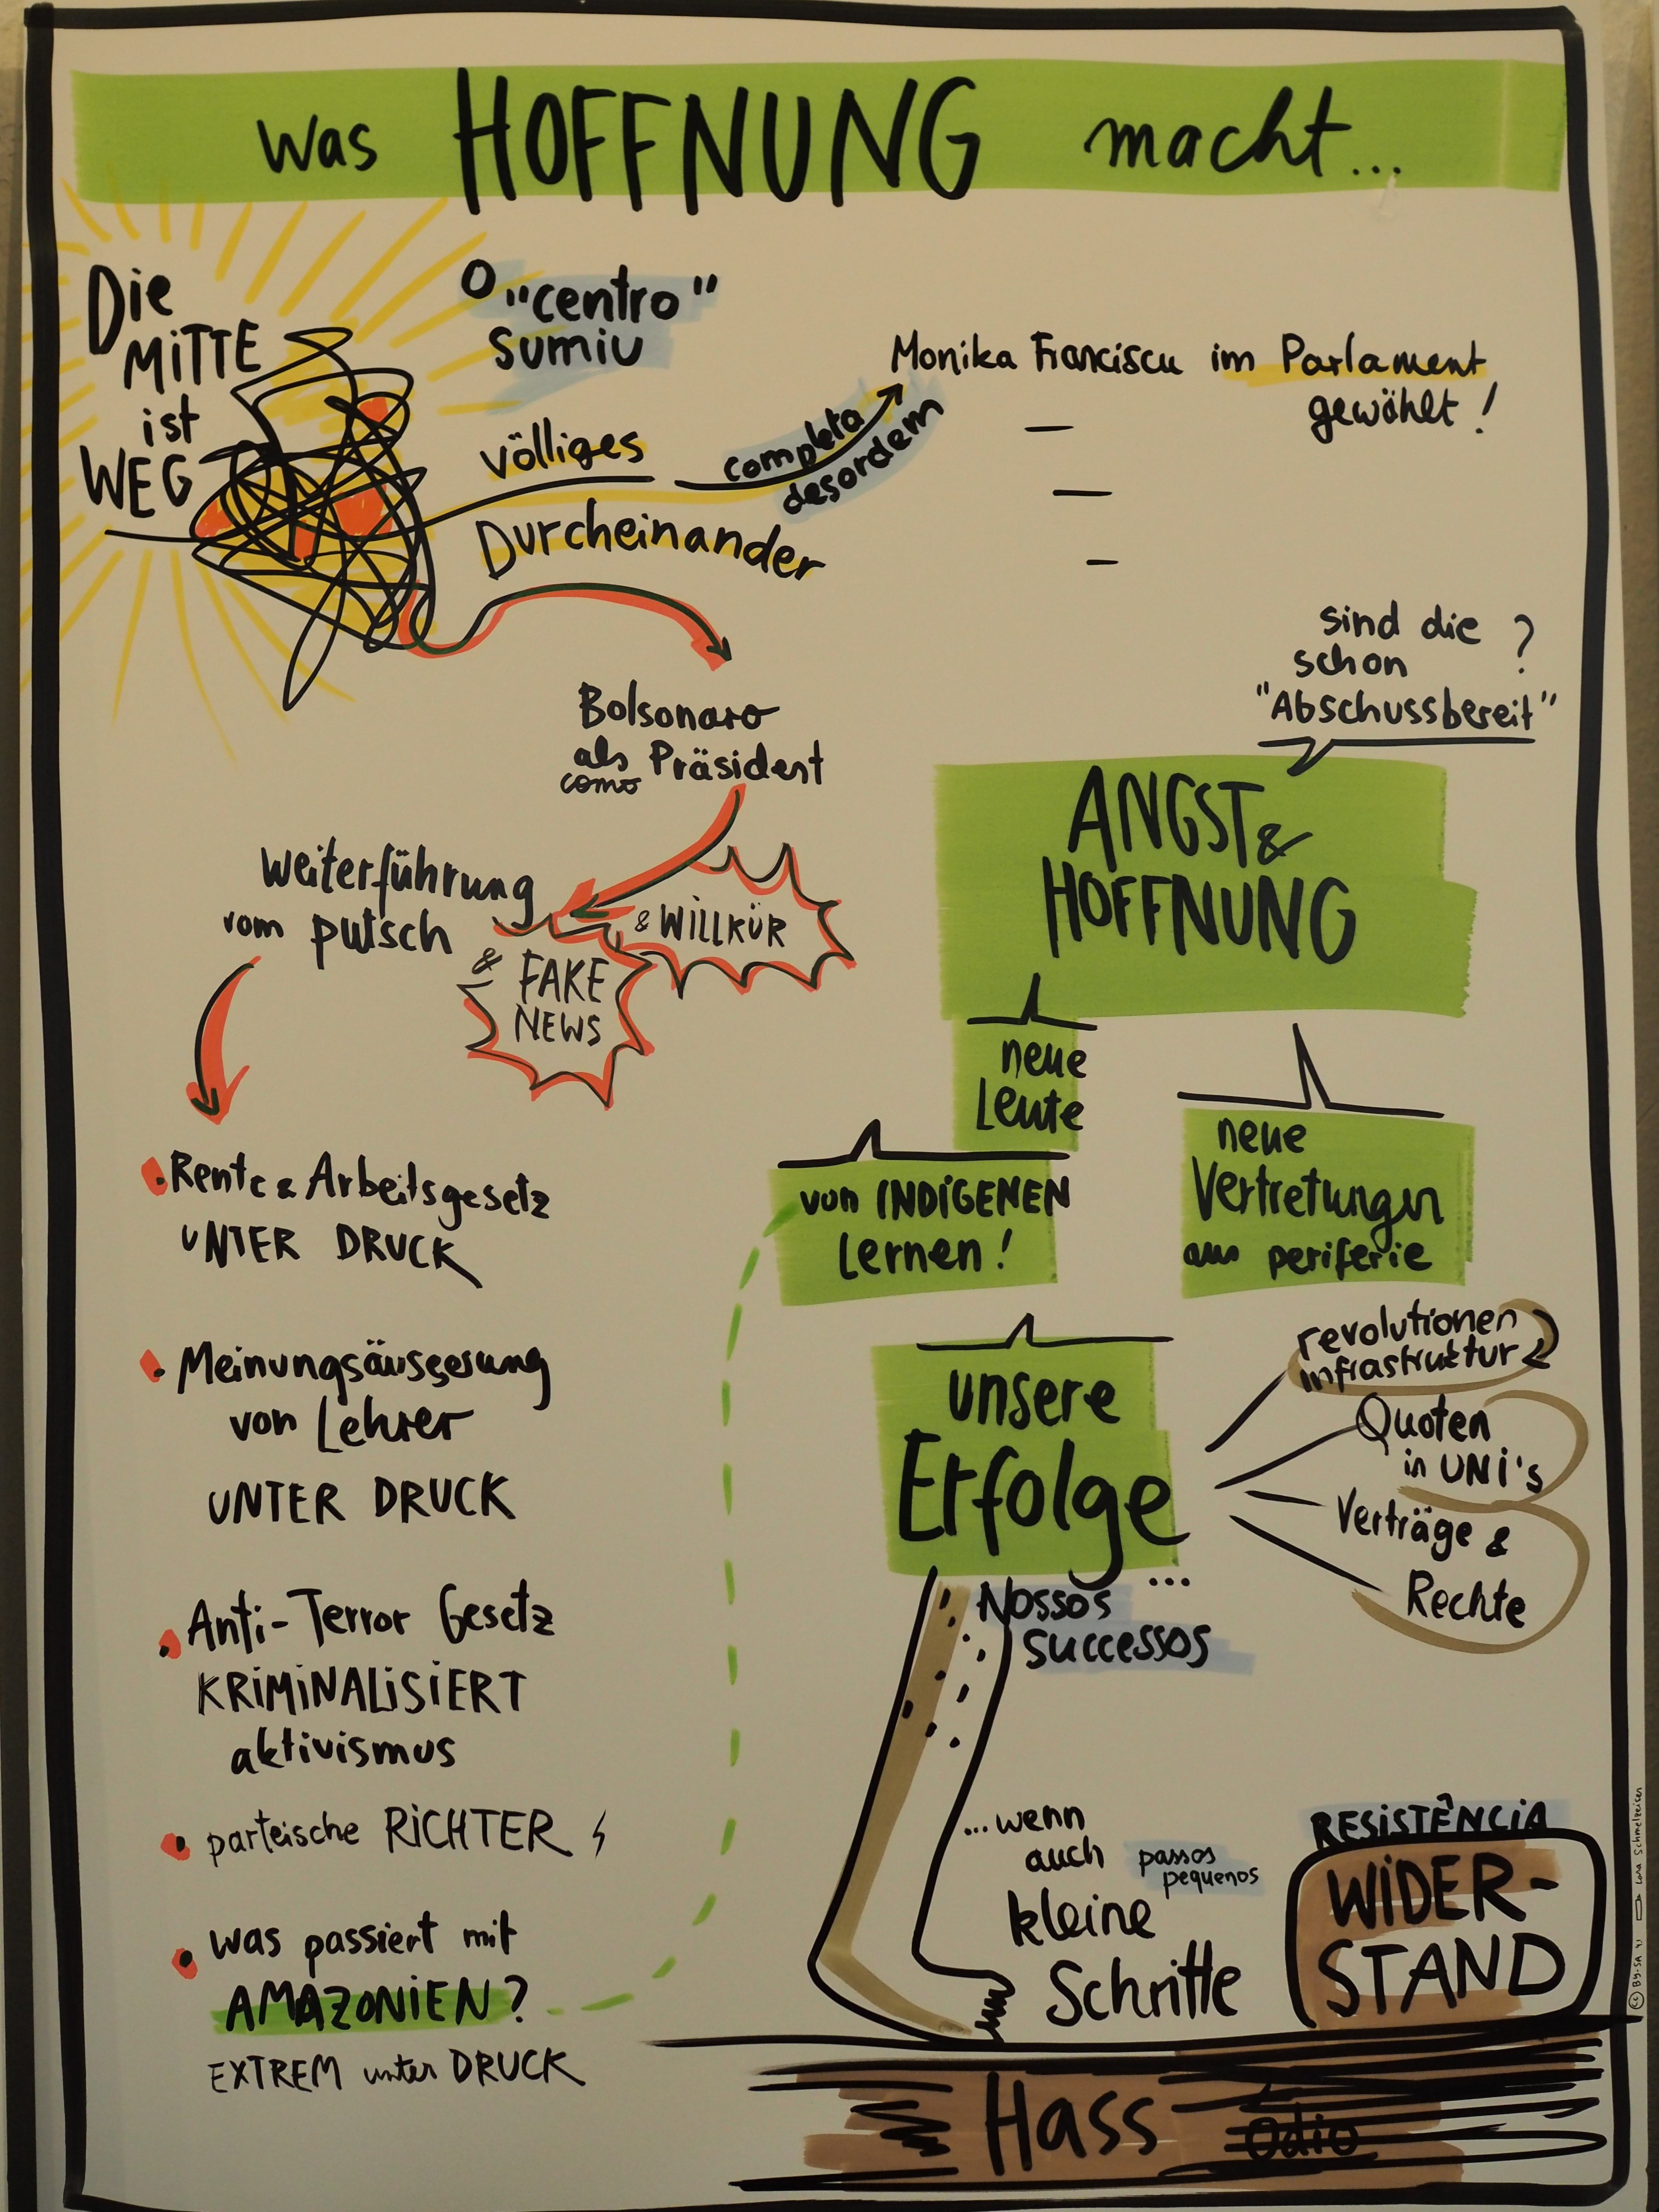 Was HOFFNUNG macht...
Die
MiTTE
ist
WEG
O "centro"
sumiu
völliges
Durcheinander
completa
desordem
Monika Franciscu im Parlament
gewählt!
Bolsonaro
als Präsident
como
Weiterführung
vom putsch
& WILLKÜR
& FAKE
NEWS
• Rente & Arbeitsgesetz
UNTER DRUCK
• Meinungsäusserung
von Lehrer
UNTER DRUCK
• Anti-Terror Gesetz
KRiMiNALiSiERT
aktivismus
• parteische RiCHTER
• was passiert mit
AMAZONiEN?
EXTREM unter DRUCK
sind die ?
schon
"Abschussbereit"
ANGST &
HOFFNUNG
neue
Leute
neue
Vertretungen
aus periferie
von INDiGENEN
Lernen!
unsere
Erfolge
...
Nossos
successos
revolutionen
infrastruktur
Quoten
in UNi's
Verträge &
Rechte
...wenn
auch
passos
pequenos
kleine
Schritte
RESiSTÊNCiA
WiDER-
STAND
Hass
Odio
BY-SA
Lara Schmelzeisen